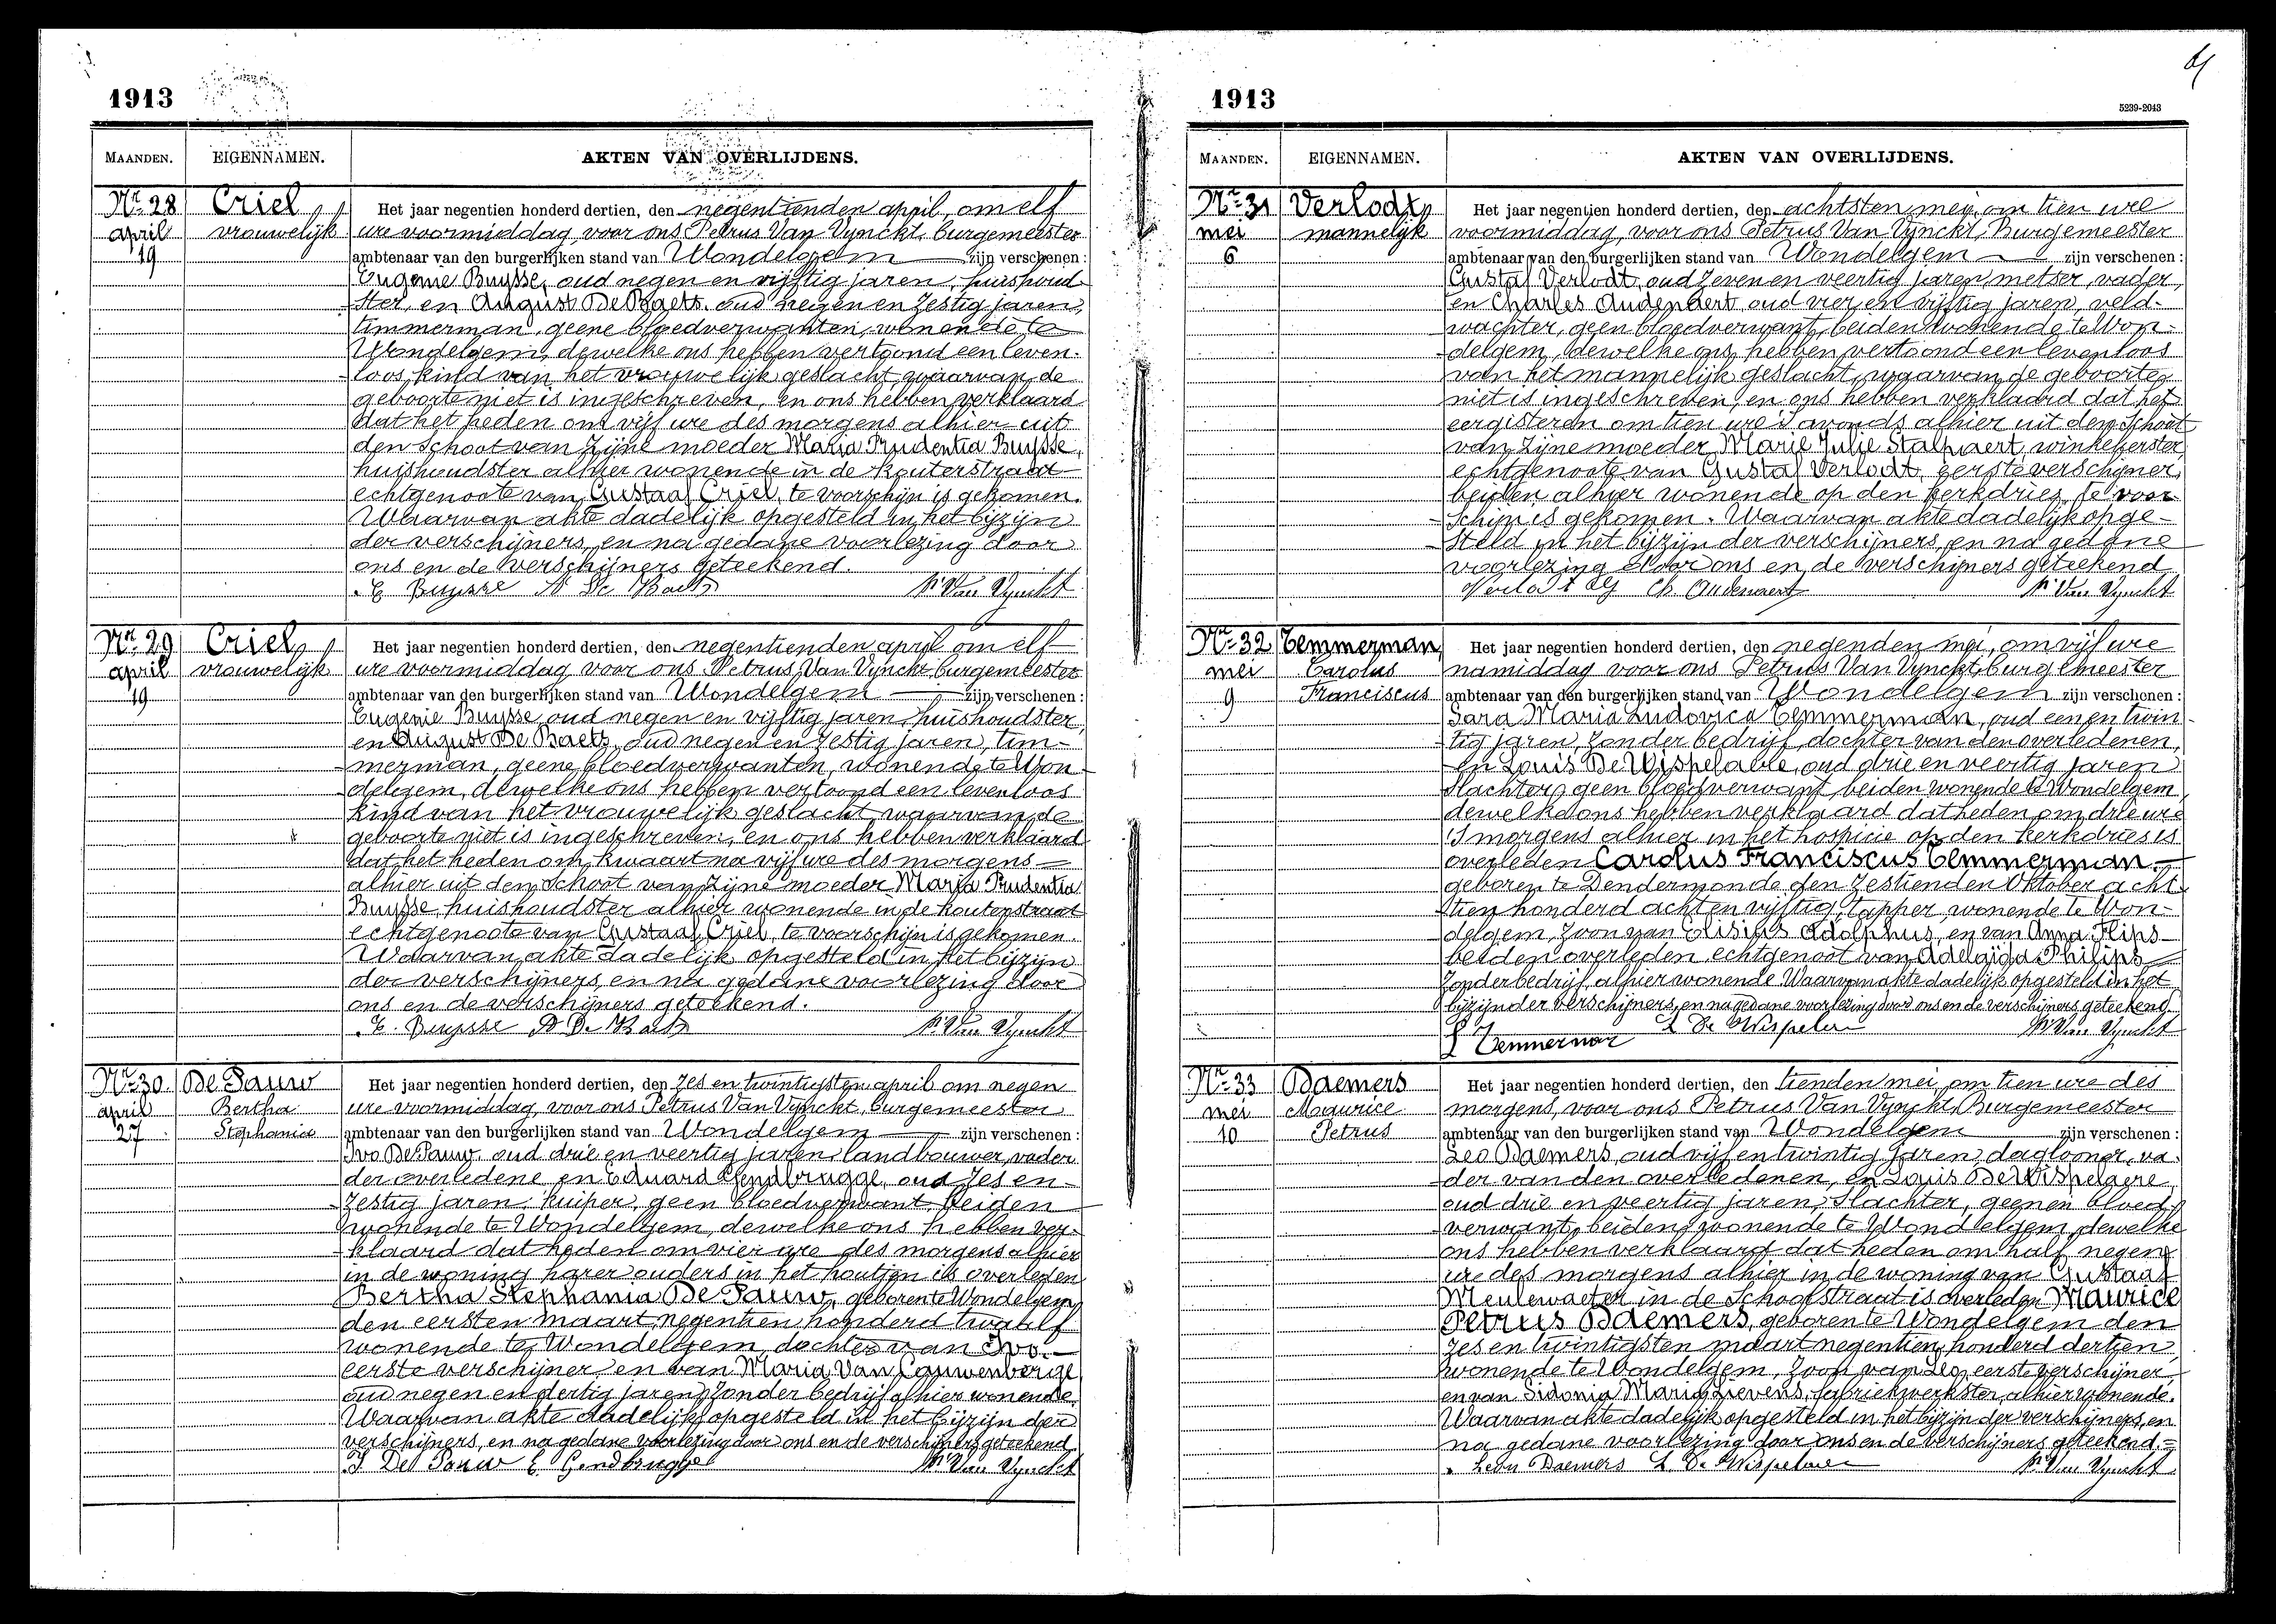 1913
MAANDEN. EIGENNAMEN. AKTEN VAN OVERLIJDENS.
Nr. 28 Criel Het jaar negentien honderd dertien, den negentienden april, om elf
april vrouwelijk ure voormiddag, voor ons Petrus Van Vynckt, burgemeester
19 ambtenaar van den burgerlijken stand van Wondelgem zijn verschenen :
Eugenie Buysse, oud negen en vijftig jaren, huishoud-
ster, en August De Baets, oud negen en zestig jaren,
timmerman, geene bloedverwanten, wonende te
Wondelgem, dewelke ons hebben vertoond een leven-
loos kind van het vrouwelijk geslacht, waarvan de
geboorte niet is ingeschreven, en ons hebben verklaard
dat het heden om vijf ure des morgens alhier uit
den schoot van zijne moeder Maria Prudentia Buysse,
huishoudster alhier wonende in de Kouterstraat
echtgenoote van Gustaaf Criel, te voorschijn is gekomen.
Waarvan akte dadelijk opgesteld in het bijzijn
der verschijners, en na gedane voorlezing door
ons en de verschijners geteekend.
E Buysse A De Baets Pr Van Vynckt
Nr. 29 Criel Het jaar negentien honderd dertien, den negentienden april om elf
april vrouwelijk ure voormiddag voor ons Petrus Van Vynckt burgemeester
19 ambtenaar van den burgerlijken stand van Wondelgem zijn verschenen :
Eugenie Buysse, oud negen en vijftig jaren, huishoudster,
en August De Baets, oud negen en zestig jaren, tim-
merman, geene bloedverwanten, wonende te Won-
delgem, dewelke ons hebben vertoond een levenloos
kind van het vrouwelijk geslacht, waarvan de
geboorte niet is ingeschreven, en ons hebben verklaard
dat het heden om kwaart na vijf ure des morgens
alhier uit den schoot van zijne moeder Maria Prudentia
Buysse, huishoudster alhier wonende in de Kouterstraat
echtgenoote van Gustaaf Criel, te voorschijn is gekomen.
Waarvan akte dadelijk opgesteld in het bijzijn
der verschijners, en na gedane voorlezing door
ons en de verschijners geteekend.
E. Buysse A De Baets Pr Van Vynckt
Nr. 30. De Pauw Het jaar negentien honderd dertien, den zes en twintigsten april om negen
april Bertha ure voormiddag, voor ons Petrus Van Vynckt, burgemeester
27 Stephania ambtenaar van den burgerlijken stand van Wondelgem zijn verschenen :
Ivo De Pauw, oud drie en veertig jaren, landbouwer, vader
der overledene, en Eduard Gendbrugge, oud zes en
zestig jaren, kuiper, geen bloedverwant, beiden
wonende te Wondelgem, dewelke ons hebben ver-
klaard dat heden om vier ure des morgens alhier
in de woning harer ouders in het houtjen is overleden
Bertha Stephania De Pauw, geboren te Wondelgem
den eersten maart negentien honderd twaalf
wonende te Wondelgem, dochter van Ivo.
eerste verschijner en van Maria Van Cauwenberge
oud negen en dertig jaren, zonder bedrijf alhier wonende.
Waarvan akte dadelijk opgesteld in het bijzijn der
verschijners, en na gedane voorlezing door ons en de verschijners geteekend.
I De Pauw E Gendbrugge Pr Van Vynckt
1913
5239-2043
MAANDEN. EIGENNAMEN. AKTEN VAN OVERLIJDENS.
Nr. 31 Verlodt, Het jaar negentien honderd dertien, den achtsten mei, om tien ure
mei mannelijk voormiddag, voor ons Petrus Van Vynckt, Burgemeester
6 ambtenaar van den burgerlijken stand van Wondelgem zijn verschenen :
Gustaf Verlodt, oud zeven en veertig jaren, metser, vader,
en Charles Audenaert, oud vier en vijftig jaren, veld-
wachter, geen bloedverwant, beiden wonende te Won-
delgem, dewelke ons hebben vertoond een levenloos
van het mannelijk geslacht, waarvan de geboorte
niet is ingeschreven, en ons hebben verklaard dat het
eergisteren om tien ure 's avonds alhier uit den schoot
van zijne moeder Marie Julie Stalpaert, winkelierster
echtgenoote van Gustaf Verlodt, eerste verschijner,
beiden alhier wonende op den kerkdries, te voor-
schijn is gekomen. Waarvan akte dadelijk opge-
steld in het bijzijn der verschijners, en na gedane
voorlezing door ons en de verschijners geteekend
Verlodt Ch. Oudenaert Pr Van Vynckt
Nr. 32 Temmerman, Het jaar negentien honderd dertien, den negenden mei, om vijf ure
mei Carolus namiddag voor ons Petrus Van Vynckt, burgemeester
9 Franciscus ambtenaar van den burgerlijken stand van Wondelgem zijn verschenen :
Sara Maria Ludovica Temmerman, oud een en twin-
tig jaren, zonder bedrijf, dochter van den overledenen,
en Louis De Wispelaere, oud drie en veertig jaren
slachter, geen bloedverwant, beiden wonende te Wondelgem,
dewelke ons hebben verklaard dat heden om drie ure
's morgens alhier in het hospicie op den kerkdries is
overleden Carolus Franciscus Temmerman
geboren te Dendermonde den zestienden Oktober acht-
tien honderd acht en vijftig, tapper, wonende te Won-
delgem, zoon van Elisius Adolphus, en van Anna Flips
beiden overleden, echtgenoot van Adelgiga Philips
zonder bedrijf alhier wonende. Waarvan akte dadelijk opgesteld in het
bijzijn der verschijners, en na gedane voorlezing door ons en de verschijners geteekend.
S Temmerman L De Wispelaere Pr Van Vynckt
Nr. 33 Daemers Het jaar negentien honderd dertien, den tienden mei, om tien ure des
mei Maurice morgens, voor ons Petrus Van Vynckt, Burgemeester
10 Petrus ambtenaar van den burgerlijken stand van Wondelgem zijn verschenen :
Leo Daemers, oud vijf en twintig jaren, daglooner, va-
der van den overledenen, en Louis De Wispelaere,
oud drie en veertig jaren, slachter, geenen bloed-
verwant, beiden wonende te Wondelgem, dewelke
ons hebben verklaard dat heden om half negen
ure des morgens alhier in de woning van Gustaaf
Meulewaeter in de Schoolstraat is overleden Maurice
Petrus Daemers, geboren te Wondelgem den
zes en twintigsten maart negentien honderd dertien,
wonende te Wondelgem, zoon van Leo, eerste verschijner,
en van Sidonia Maria Lievens, fabriekwerkster, alhier wonende.
Waarvan akte dadelijk opgesteld in het bijzijn der verschijners, en
na gedane voorlezing door ons en de verschijners geteekend.
Leon Daemers L. De Wispelaere Pr Van Vynckt